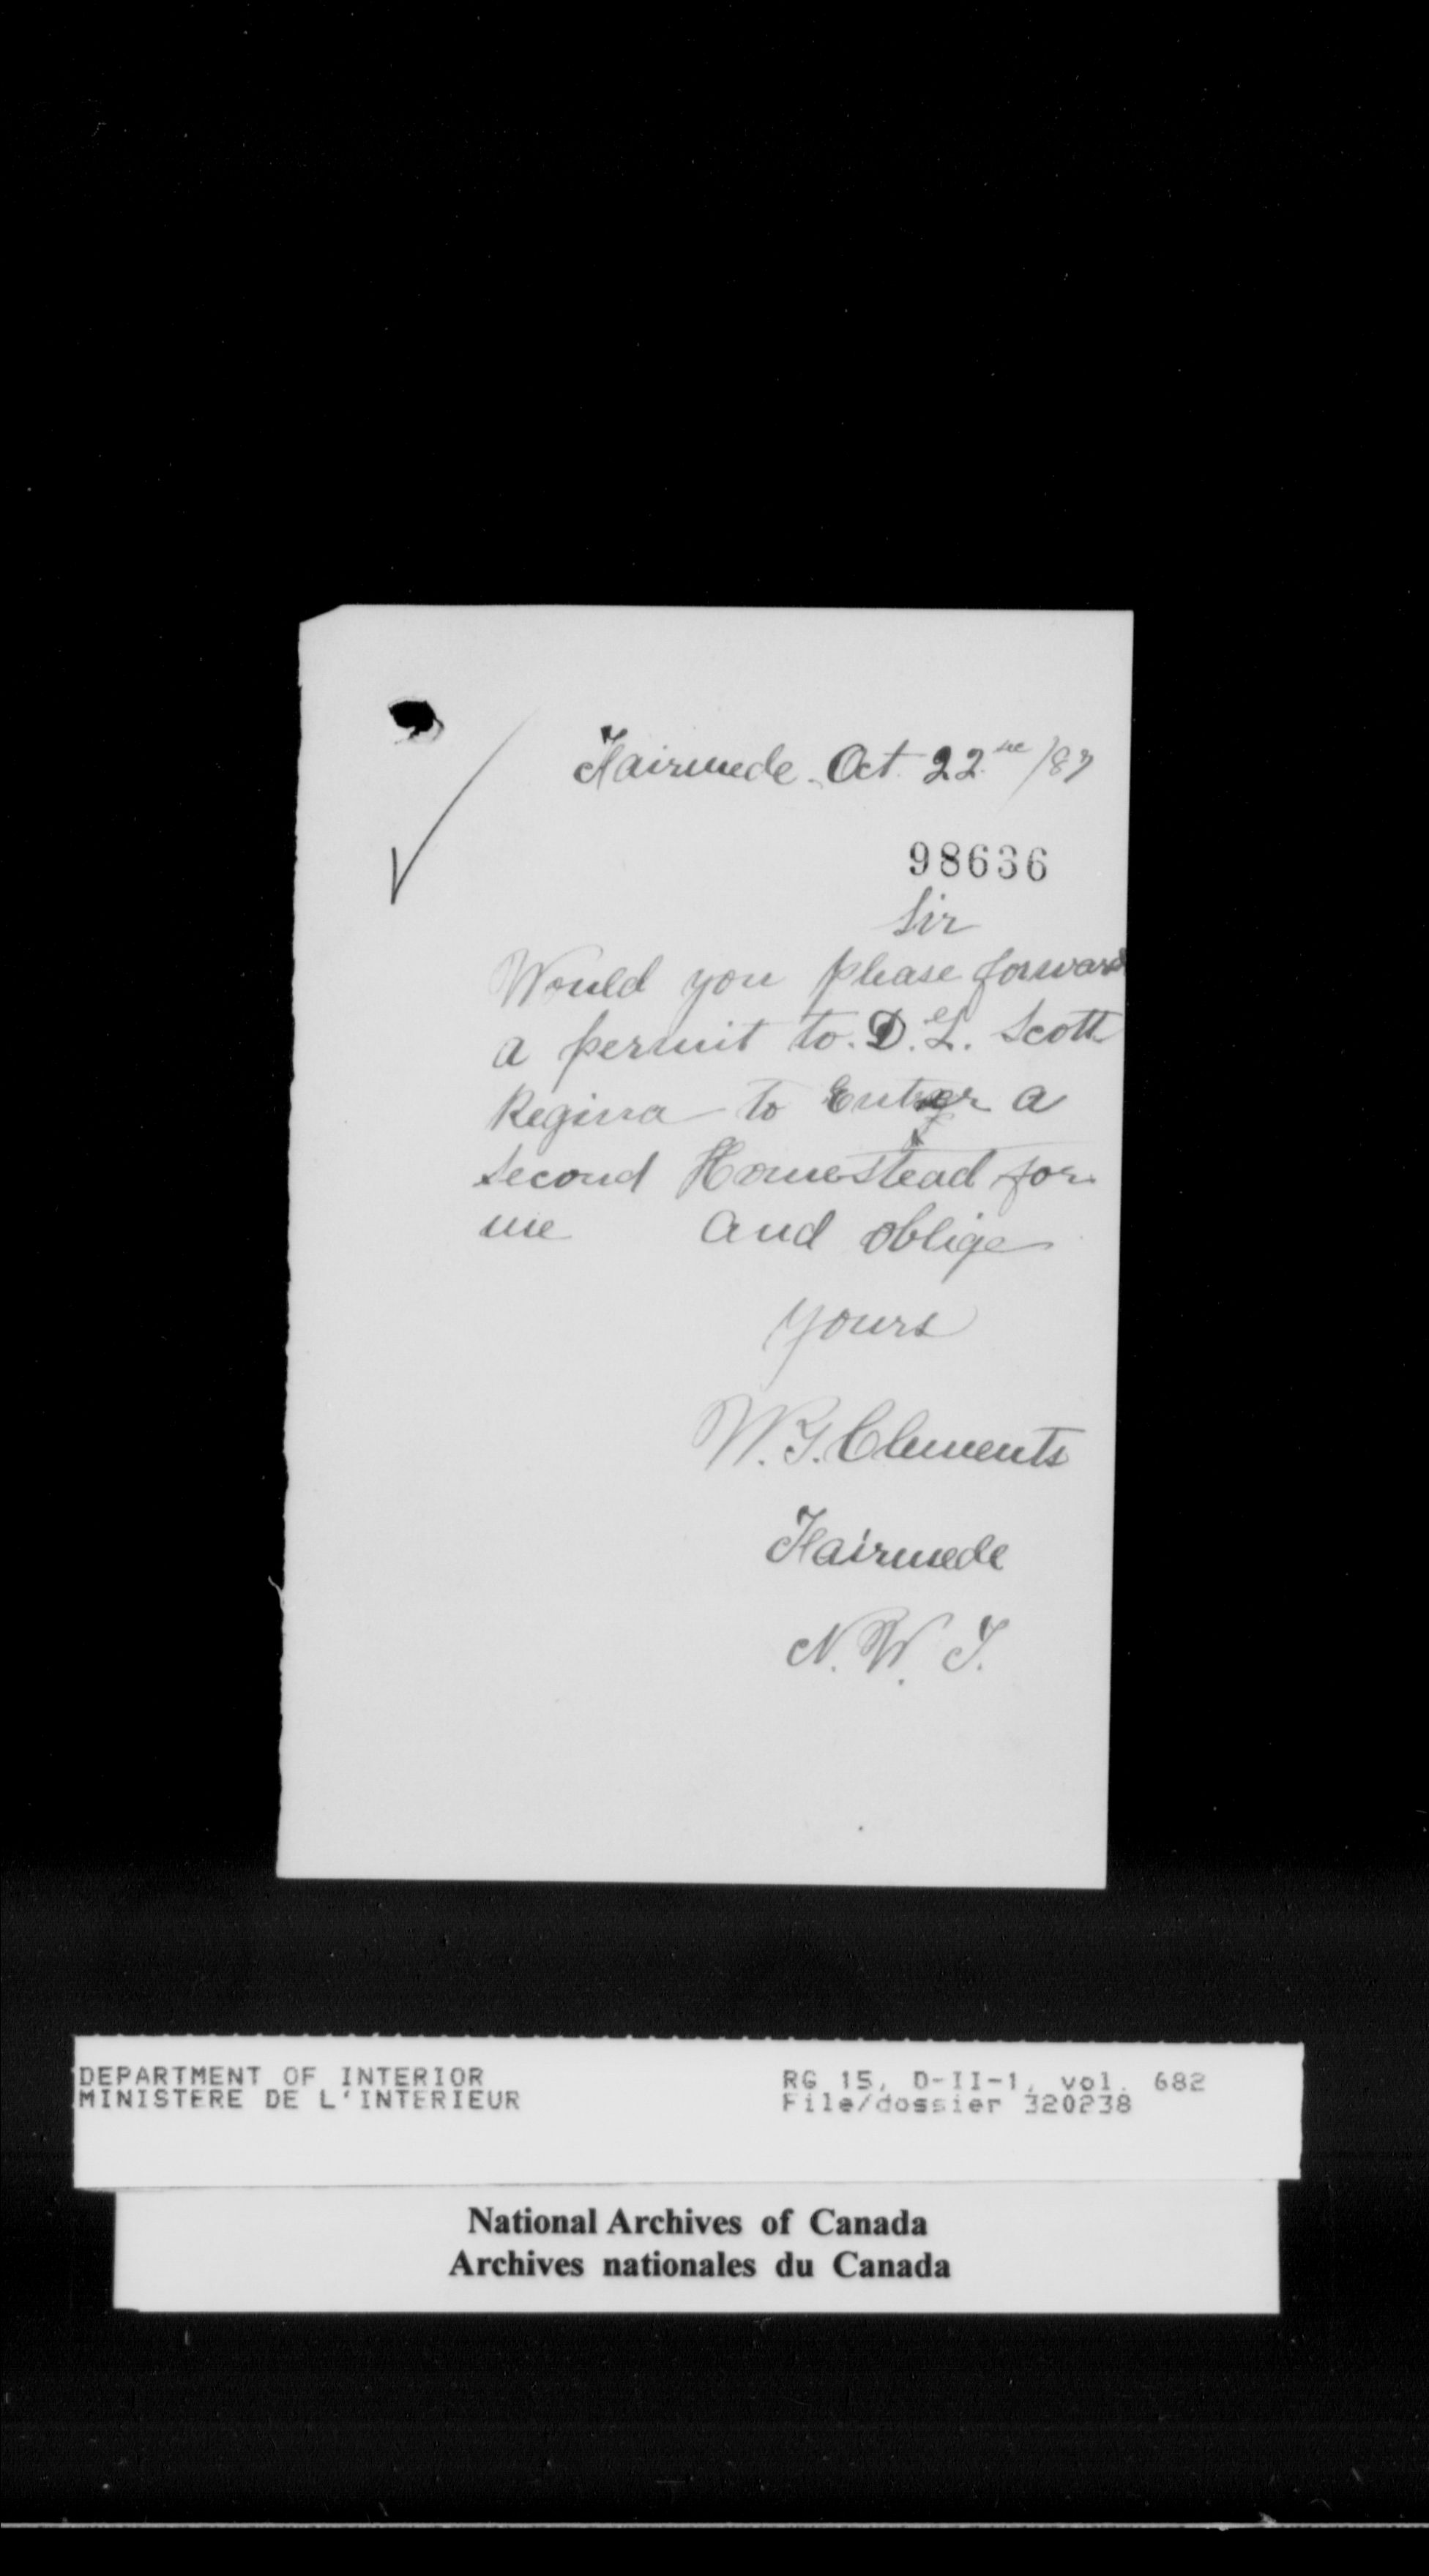 Fairmede. Oct. 22nd /87
98636
Sir
Would you please forward
a permit to D. L. Scott
Regina to Enter a
second Homestead for
me and oblige
yours
W. G. Clements
Fairmede
N. W. T.
DEPARTMENT OF INTERIOR
MINISTERE DE L'INTERIEUR
RG 15, D-II-1, vol. 682
File/dossier 320238
National Archives of Canada
Archives nationales du Canada